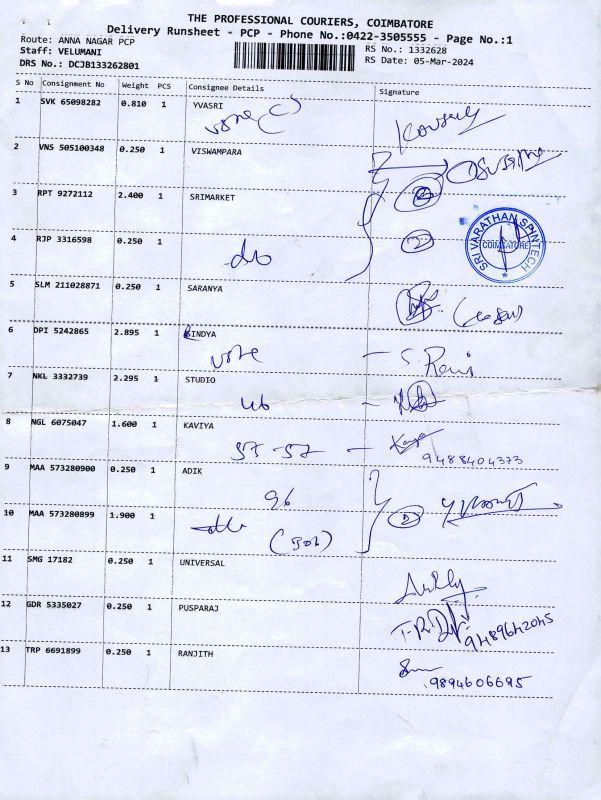 THE PROFESSIONAL COURIERS, COIMBATORE
Delivery Runsheet - PCP - Phone No.:0422-3505555 - Page No.:1
Route: ANNA NAGAR PCP
RS No.: 1332628
Staff: VELUMANI
RS Date: 05-Mar-2024
DRS No.: DCJB133262801
S No Consignment No Weight PCS Consignee Details Signature
1 SVK 65098282 0.810 1 YVASRI
2 VNS 505100348 0.250 1 VISWAMPARA
3 RPT 9272112 2.400 1 SRIMARKET
SRI VARATHAN SPINTECH
COIMBATORE
4 RJP 3316598 0.250 1
5 SLM 211028871 0.250 1 SARANYA
6 DPI 5242865 2.895 1 BINDYA
S. Rani
7 NKL 3332739 2.295 1 STUDIO
8 NGL 6075047 1.600 1 KAVIYA
9488404373
9 MAA 573280900 0.250 1 ADIK
96
10 MAA 573280899 1.900 1
11 SMG 17182 0.250 1 UNIVERSAL
12 GDR 5335027 0.250 1 PUSPARAJ
9489642045
13 TRP 6691899 0.250 1 RANJITH
9894606695